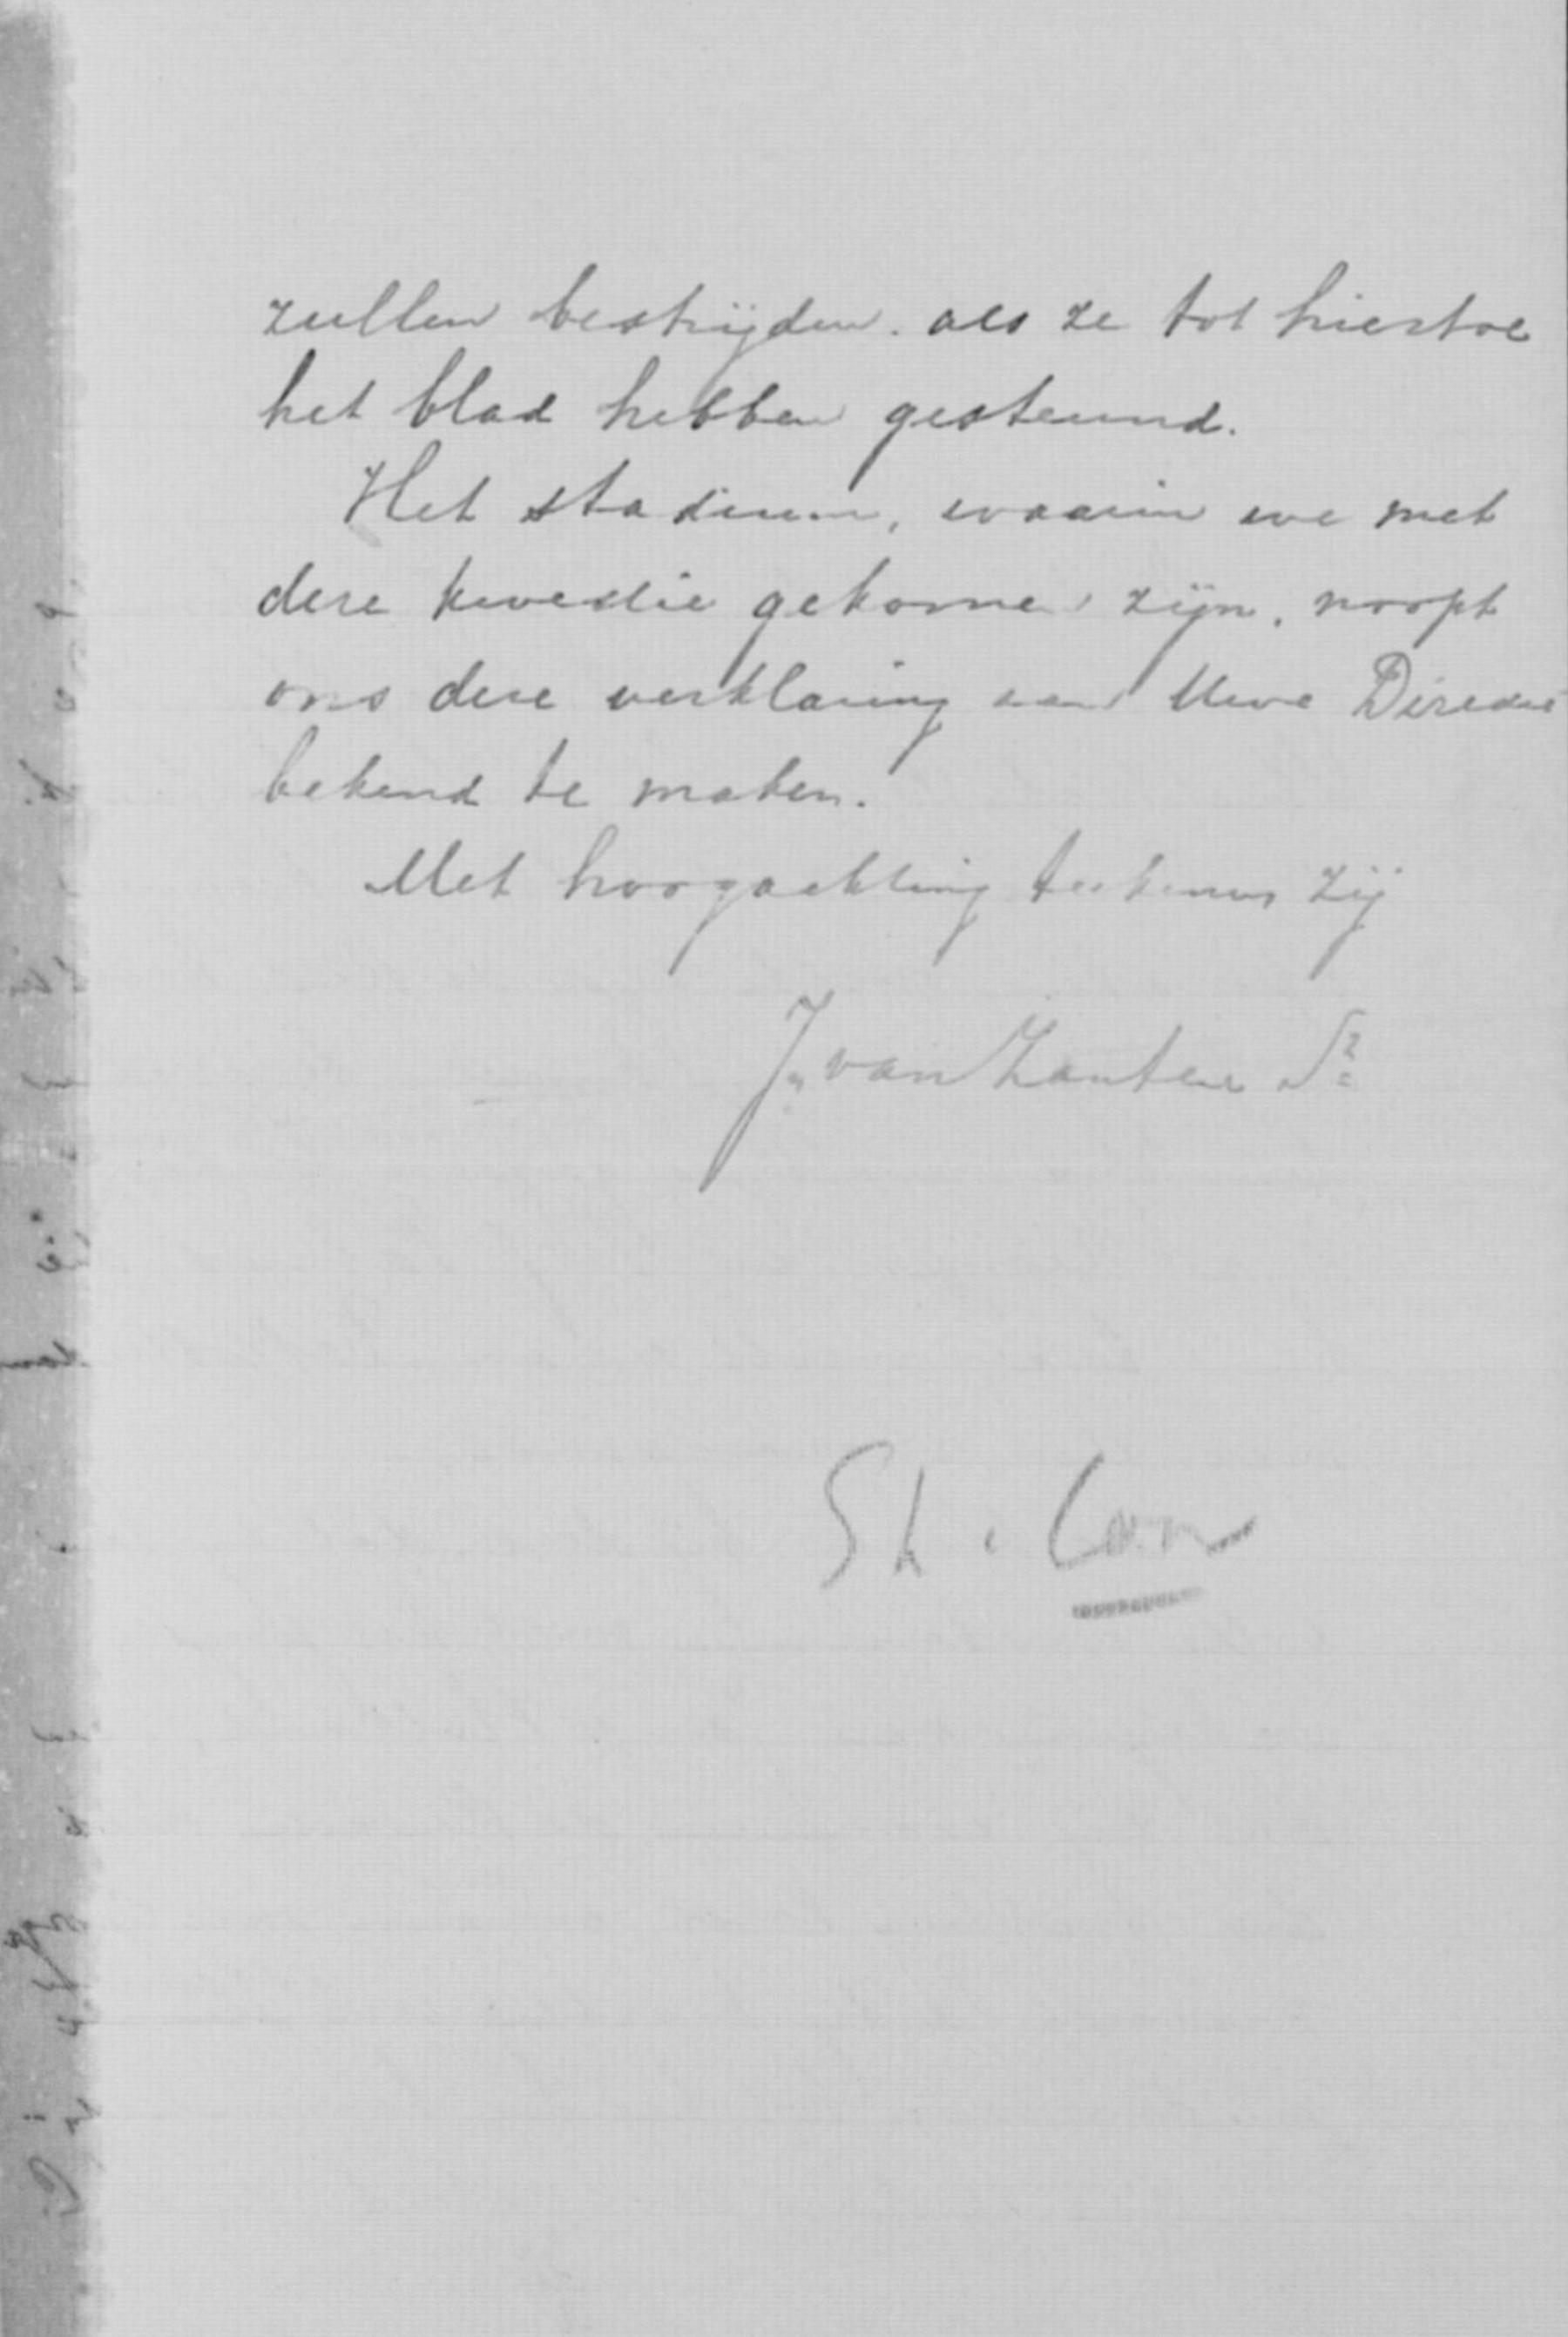 zullen bestrijden. als ze tot hiertoe
het blad hebben gesteund.
Het stadium, waarin we met
deze kwestie gekomen zijn, noopt
ons deze verklaring aan Uwe Directie
bekend te maken.
Met hoogachting teekenen zij
J. van Zanten Sr
St. Com